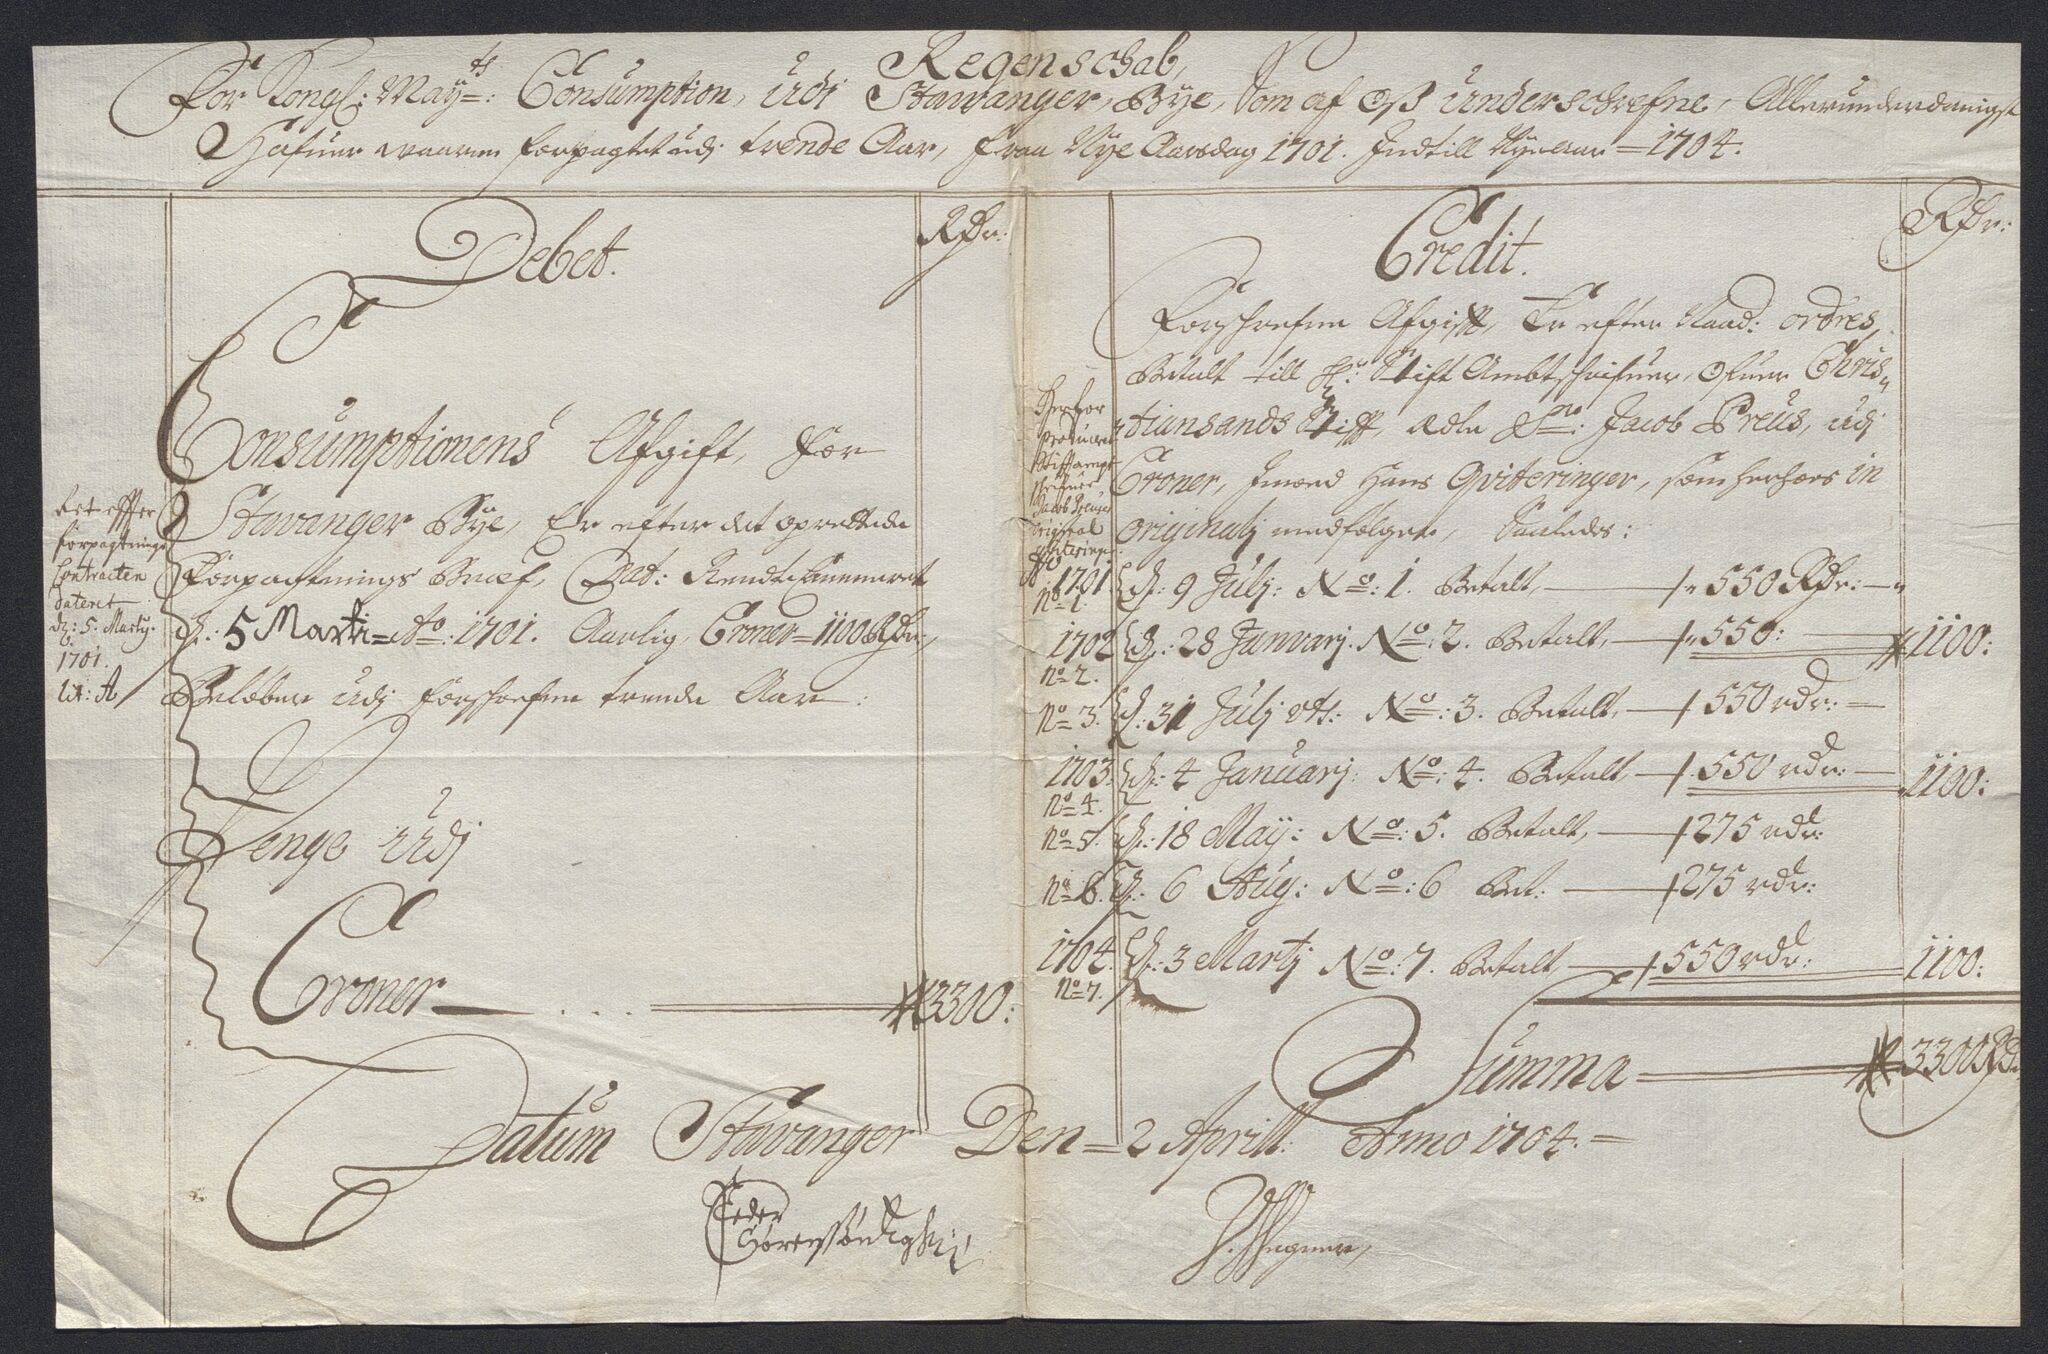 Regenschab,
For Kongl: May:ts Consumption, Udi Stawanger Bye, Som af Oß Underschrefne, Allerunderdanigst
Hafuer waaren forpagtet udj trende Aar, fraa Nye Aarsdag 1701. Indtill Nyeaar = 1704.
Debet.
Rdr:
Consumptionens Afgift, for
Stawanger Bye, Er efter det oprettede
Forpachtnings Bref, Dat: Rendte Cammeret
d: 5 Marti = Ao: 1701. Aarlig Croner = 1100 Rdr,
Beløber udj forschrefne trende Aar:
Penge udj
Croner 3300:
Det effter
forpagtnings
Contracten
dateret
d: 5. Marty.
1701.
lit: A
Credit.
Rdr:
Forschrefne Afgift, Er efter Naad: ordres,
Betalt till Hr: Stift Ambtschrifuer, Ofuer Chris-
tiansands Stift, Edle Sr: Jacob Preus, udj
Croner, Imod Hans Qviteringer, som herhos in
originalj medfølger, Saaledes:
Herfor
produceret
Stiftampt
schrifuer
Jacob Preuses
original
qviteringer
Ao
1701 d: 9 Julj: No: 1. Betalt, 550 Rdr:
No 1.
1702 d: 28 Januarj. No: 2. Betalt, 550: 1100:
No 2.
No 3. d: 31 Julj No: 3. Betalt, 550 rdr:
1703. d: 4 Januarj: No: 4. Betalt, 550 rdr: 1100:
No 4.
No 5. d: 18 Maÿ: No: 5. Betalt, 275 rdr:
No 6. d: 6 Aug: No: 6 Bet. 275 rdr:
1704. d: 3 Martj No: 7. Betalt, 550 rdr: 1100:
No 7.
Summa 3300 Rdr
Datum Stawanger Den = 2 Aprill: Anno 1704. =
Peder